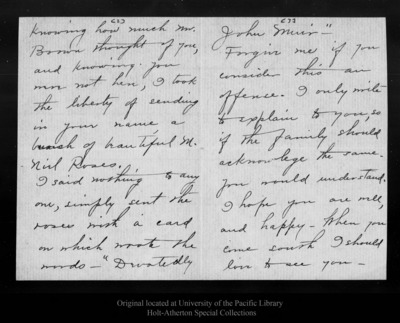 (2)
Knowing how much Mr.
Brown thought of you,
and knowing you
were not here, I took
the liberty of sending
in your name a
bunch of beautiful M.
Niel Roses.
I said nothing to any
one, simply sent the
roses with a card
on which wrote the
words - "Devotedly
(3)
John Muir"-
Forgive me if you
consider this an
offence. I only write
to explain to you, so
if the family should
acknowlege the same.
you would understand.
I hope you are well,
and happy - When you
come south I should
love to see you -
Original located at University of the Pacific Library
Holt-Atherton Special Collections